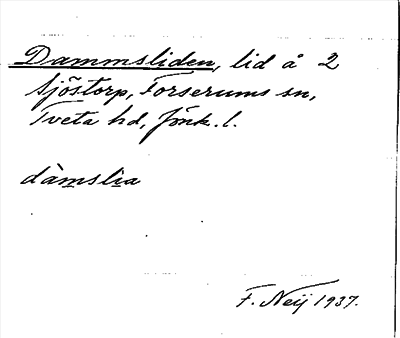 Dammsliden, lid å 2
Sjöstorp, Forserums sn,
Tveta hd, Jönk. l.
dàmslia
F. Neij 1937.